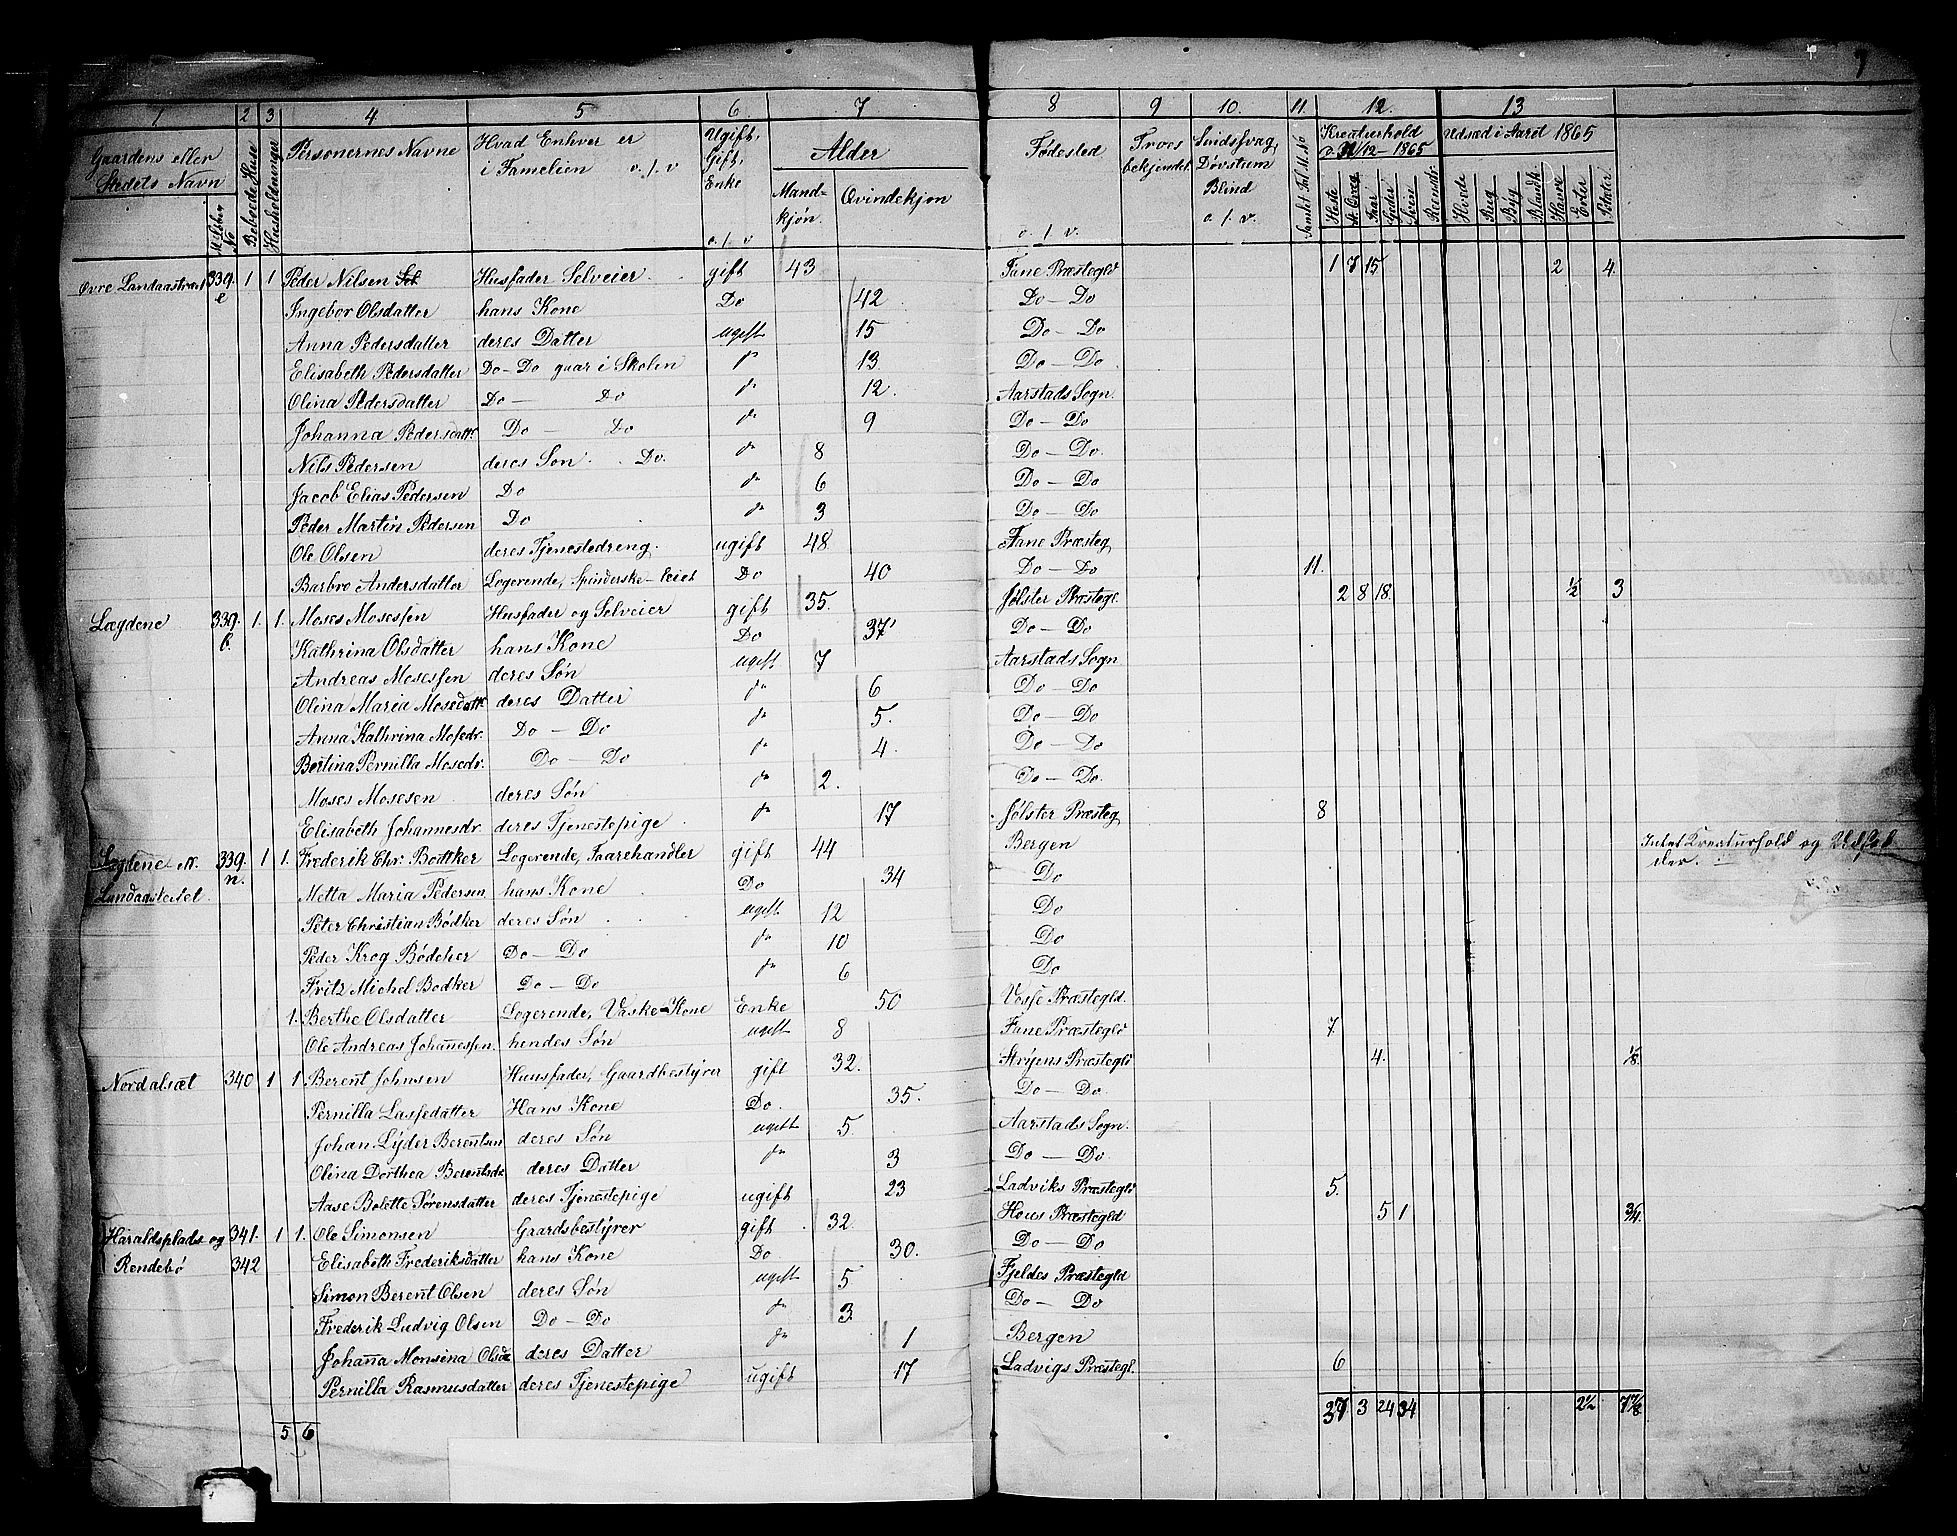 1 2 3 4 5 6 7 8 9 10. 11. 12. 13
Gaardens eller Stedets Navn M. Løbe No Beboede Huse Husholdninger Personernes Navne Hvad Enhver er i Familien o. s. v Ugift, Gift, Enke o. s. v Alder Mandkjøn. Qvindekjøn Fødested o. s. v. Troes bekjendel. Sindssvag, Døvstum Blind o. s. v. Kreaturhold d. 31/12 - 1865 Heste St. Qvæg Faar Gjeder Sviin Reensdr Udsæd i Aaret 1865 Hvede Rug Byg Blandk. Havre Erter Poteter
Øvre Landaastræt 339. e 1 1 Peder Nilsen Husfader Selveier gift 43 Fane Præstegld 1 7 15 2 4.
Ingebor Olsdatter hans Kone Do 42 Do - Do
Anna Pedersdatter deres Datter ugift 15 Do - Do
Elisabeth Pedersdatter Do - Do gaar i Skolen " 13 Do - Do
Olina Pedersdatter Do - Do " 12. Aarstads Sogn.
Johanna Pedersdattr Do - Do " 9 Do - Do
Nils Pedersen deres Søn Do. " 8 Do - Do.
Jacob Elias Pedersen Do " 6 Do - Do
Peder Martin Pedersen Do " 3 Do - Do
Ole Olsen deres Tjenestedreng. ugift 48 Fane Præsteg
Barbro Andersdatter Logerende, Spinderske - leiet Do 40 Do - Do 11.
Lægdene 339. b. 1. 1. Moses Mosessen Husfader og Selveier gift 35. Jølster Præstegl. 2 8 18. 1/2 3
Kathrina Olsdatter hans Kone Do 37 Do - Do
Andreas Mosessen deres Søn ugift 7 Aarstads Sogn
Olina Maria Mosedattr deres Datter " 6 Do - Do
Anna Kathrina Mosedr. Do - Do " 5. Do - Do
Bertina Pernilla Mosedr. Do - Do " 4. Do - Do
Moses Mosesen deres Søn " 2. Do - Do.
Elisabeth Johannesdr. deres Tjenestepige " 17 Jølster Præsteg 8
Lægdene N. 339. n. 1 1. Frederik Chr. Bødtker Logerende, Faarehandler gift 44 Bergen Intet Kreaturhold og Udsæd
Landaasteilet Metta Maria Pedersen hans Kone Do 34 Do
Peter Christian Bødker deres Søn ugift 12 Do
Peder Krog Bødcher Do - Do " 10 Do
Fritz Michel Bødker Do - Do " 6 Do
1. Berthe Olsdatter Logerende, Vaske-Kone Enke 50 Vosse Præstegld.
Ole Andreas Johanessen. hendes Søn ugift 8 Fane Præstegld 7
Nordalsæt 340 1 1 Berent Johnsen Huusfader, Gaardbestyrer gift 32. Stryens Præstegld 4. 1/8.
Pernilla Lassedatter Hans Kone Do. 35. Do - Do.
Johan Lyder Berentsen deres Søn ugift 5. Aarstads Sogn.
Olina Dorthea Berentsdr deres Datter " 3 Do - Do.
Aase Bolette Sørensdatter deres Tjenestepige ugift 23 Ladviks Præstegld 5.
Haraldsplads og 341. 1 1. Ole Simonsen Gaardsbestyrer gift 32. Hous Præstegld 5 1 3/4.
Rendebø 342 Elisabeth Frederiksdatter hans Kone Do 30. Do - Do
Simon Berent Olsen deres Søn ugift 5 Fjeldes Præstegld
Frederik Ludvig Olsen Do - Do " 3. Do - Do
Johanna Monsena Olsdr deres Datter " 1 Bergen
Pernilla Rasmusdatter deres Tjenestepige ugift 17 Ladvigs Præstegl. 6
5 6 37 3 24 34 2 1/2 7 7/8